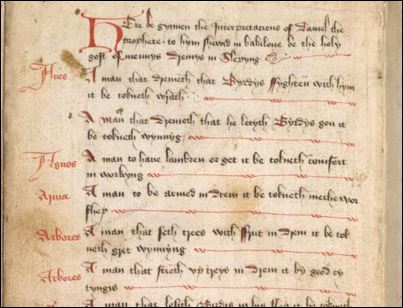 Here be gynnen the Interpretacions of Daniel the
prophete · to hym shewid in babilone be the holy
gost of mennys Dremys in Slepyng
Aues
A man that Dremeth that Byrdys ffyghten with hym
it be tokneth wrath
A man that Dremeth that he letyth Byrdys gon it
be tokneth wynnyng
Agnos
A man to haue lambren or get it be tokneth comfert
in workyng
Arma
A man to be armed in Drem it be tokneth meche wor
shep
Arbores
A man that seth trees with ffrut in Drem it be tok
neth gret wynnyng
Arbores
A man that stieth up treys in Drem it by
tyngis
A man that